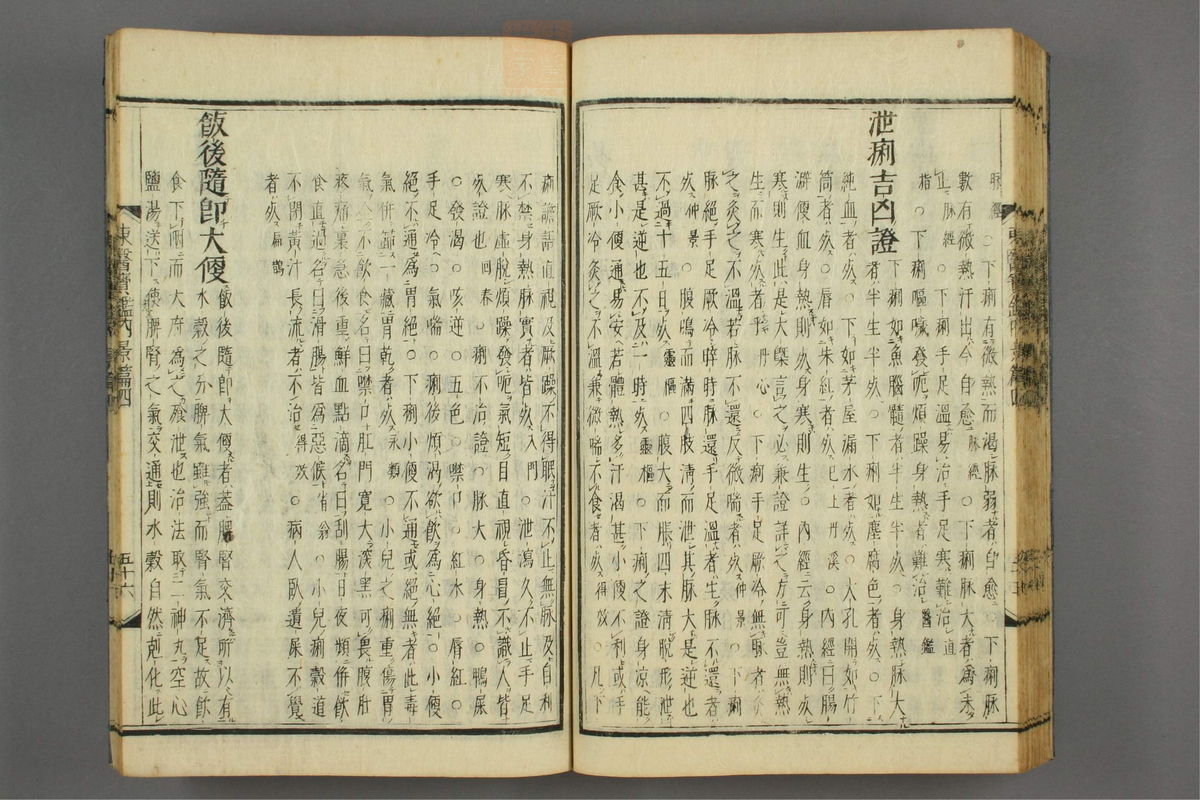 脉經○下痢有微熱而渴脉弱者自愈○下痢脉
數有微熱汗出令自愈脉經○下痢脉大者爲未
止脉經○下痢手足溫易治手足寒難治直
指○下痢嘔噦發呃煩躁身熱者難治醫鑑
泄痢吉凶證
下痢如魚腦髓者半生半死○身熱脉大
者半生半死○下痢如塵腐色者死○下
純血者死○下如茅屋漏水者死○大孔開如竹
筒者死○脣如朱紅者死已上丹溪○內經曰腸
澼便血身熱則死身寒則生○內經云身熱則死
寒則生此是大槩言之必兼證詳之方可豈無熱
生而寒死者乎丹心○下痢手足厥冷無脉者
灸之不溫若脉不還反微喘者死仲景○下痢
脉絕手足厥冷晬時脉還手足溫者生脉不還者
死仲景○腹鳴而滿四肢淸而泄其脉大是逆也
不過十五日死靈樞○腹大而脹四末淸脫形泄
甚是逆也不及一時死靈樞○下痢之證身凉能
食小便通易安若體熱多汗渴甚小便不利或手
足厥冷灸之不溫兼微喘不食者死得效○凡下
痢譫語直視及厥躁不得眠汗不止無脉及自利
不禁身熱脉實者皆死入門○泄瀉久不止手足
寒脉虛脫煩躁發呃氣短目直視昏冒不識人皆
死證也回春○痢不治證○脉大○身熱○鴨屎
○發渴○咳逆○五色○噤口○紅水○脣紅○
手足冷○氣喘○痢後煩渴欲飮爲心絕○小便
絕不通爲胃絕○下痢小便不通或絕無者此毒
氣併歸一藏胃乾者死永類○小兒之痢重傷胃
氣全不飮食名曰噤口肛門寬大深黑可畏腹肚
疼痛裏急後重鮮血點滴名曰刮腸日夜頻併飮
食直過名曰滑腸皆爲惡候省翁○小兒痢穀道
不閉黃汁長流者不治得效○病人臥遺屎不覺
者死扁鵲
飯後隨卽大便
飯後隨卽大便者盖脾腎交濟所以有
水穀之分脾氣雖強而腎氣不足故飮
食下嚥而大府爲之飱泄也治法取二神丸空心
鹽湯送下使脾腎之氣交通則水穀自然剋化此
東醫寶鑑內景篇四
五十六